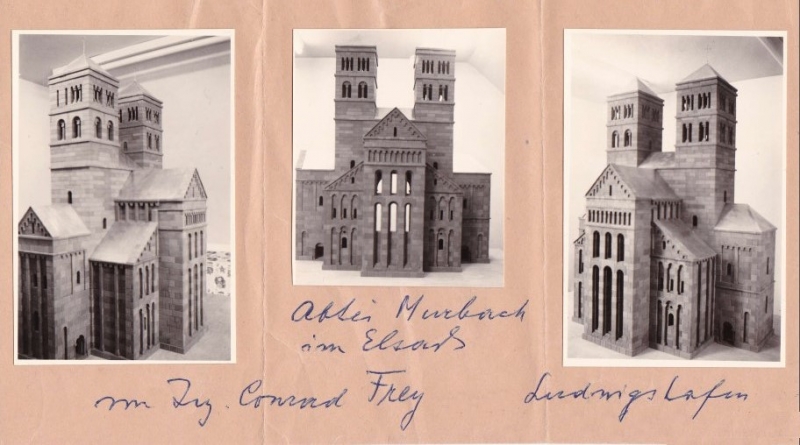 Abtei Murbach
im Elsass
von Ing. Conrad Frey
Ludwigshafen